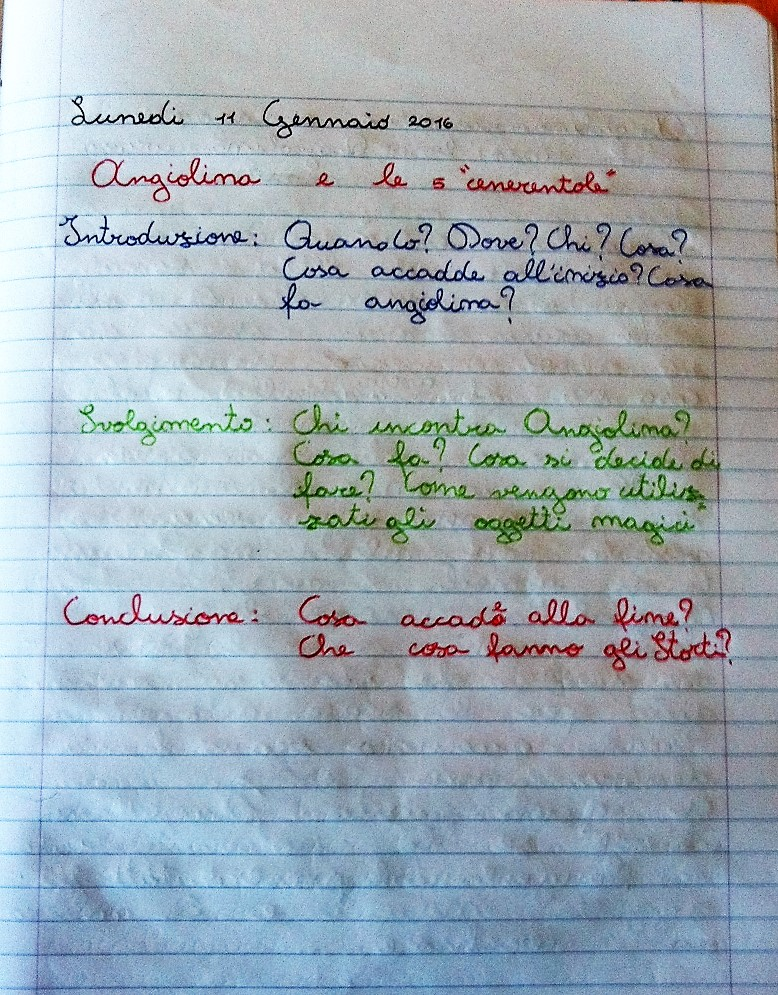 Lunedi 11 Gennaio 2016
Angiolina e le 5 "cenerentole"
Introduzione: Quando? Dove? Chi? Cosa?
Cosa accadde all'inizio? Cosa
fa angiolina?
Svolgimento: Chi incontra Angiolina?
Cosa fa? Cosa si decide di
fare? Come vengono utiliz=
zati gli oggetti magici
Conclusione: Cosa accade alla fine?
Che cosa fanno gli Storti?